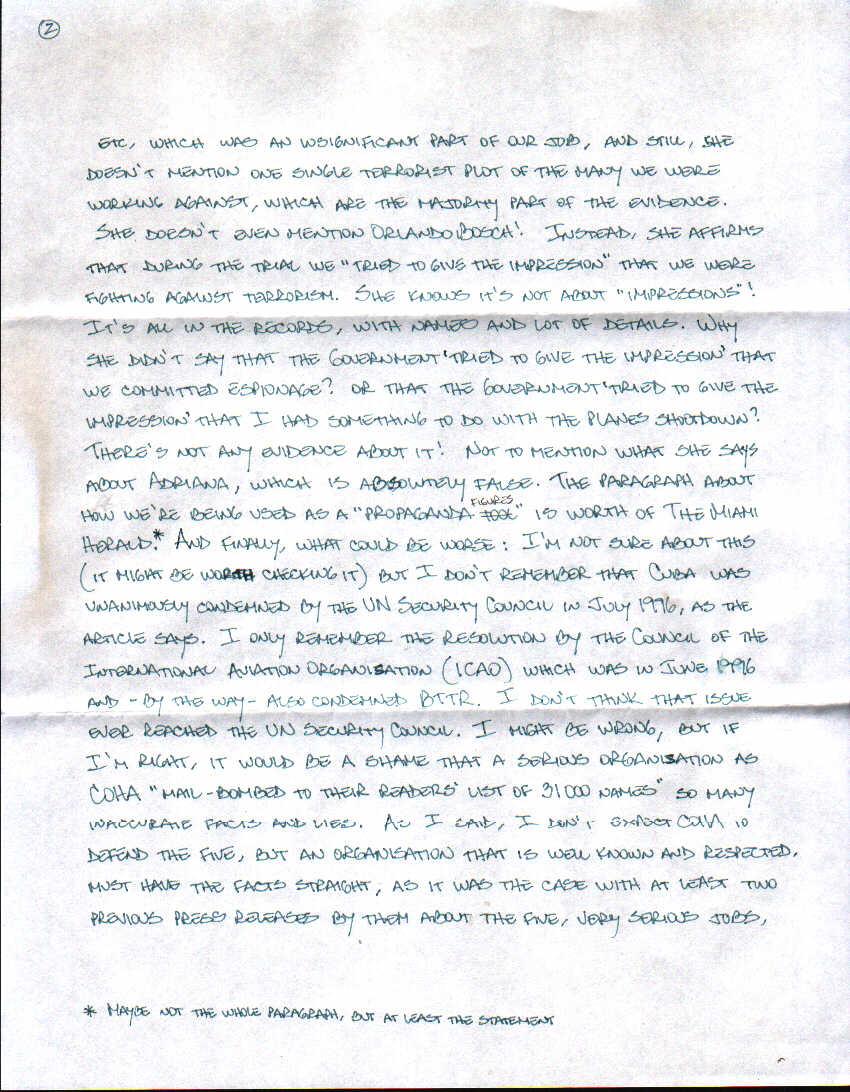 2
ETC, WHICH WAS AN INSIGNIFICANT PART OF OUR JOB, AND STILL, SHE
DOESN'T MENTION ONE SINGLE TERRORIST PLOT OF THE MANY WE WERE
WORKING AGAINST, WHICH ARE THE MAJORITY PART OF THE EVIDENCE.
SHE DOESN'T EVEN MENTION ORLANDO BOSCH! INSTEAD, SHE AFFIRMS
THAT DURING THE TRIAL WE "TRIED TO GIVE THE IMPRESSION" THAT WE WERE
FIGHTING AGAINST TERRORISM. SHE KNOWS IT'S NOT ABOUT "IMPRESSIONS"!
IT'S ALL IN THE RECORDS, WITH NAMES AND LOT OF DETAILS. WHY
SHE DIDN'T SAY THAT THE GOVERNMENT 'TRIED TO GIVE THE IMPRESSION' THAT
WE COMMITTED ESPIONAGE? OR THAT THE GOVERNMENT 'TRIED TO GIVE THE
IMPRESSION' THAT I HAD SOMETHING TO DO WITH THE PLANES SHOOTDOWN?
THERE'S NOT ANY EVIDENCE ABOUT IT! NOT TO MENTION WHAT SHE SAYS
ABOUT ADRIANA, WHICH IS ABSOLUTELY FALSE. THE PARAGRAPH ABOUT
HOW WE'RE BEING USED AS A "PROPAGANDA FIGURES" IS WORTH OF THE MIAMI
HERALD.* AND FINALLY, WHAT COULD BE WORSE: I'M NOT SURE ABOUT THIS
(IT MIGHT BE WORTH CHECKING IT) BUT I DON'T REMEMBER THAT CUBA WAS
UNANIMOUSLY CONDEMNED BY THE UN SECURITY COUNCIL IN JULY 1996, AS THE
ARTICLE SAYS. I ONLY REMEMBER THE RESOLUTION BY THE COUNCIL OF THE
INTERNATIONAL AVIATION ORGANISATION (ICAO) WHICH WAS IN JUNE 1996
AND - BY THE WAY - ALSO CONDEMNED BTTR. I DON'T THINK THAT ISSUE
EVER REACHED THE UN SECURITY COUNCIL. I MIGHT BE WRONG, BUT IF
I'M RIGHT, IT WOULD BE A SHAME THAT A SERIOUS ORGANISATION AS
COHA "MAIL-BOMBED TO THEIR READERS' LIST OF 31000 NAMES" SO MANY
INACCURATE FACTS AND LIES. AS I SAID, I DON'T EXPECT COHA TO
DEFEND THE FIVE, BUT AN ORGANISATION THAT IS WELL KNOWN AND RESPECTED,
MUST HAVE THE FACTS STRAIGHT, AS IT WAS THE CASE WITH AT LEAST TWO
PREVIOUS PRESS RELEASES BY THEM ABOUT THE FIVE, VERY SERIOUS JOBS,
* MAYBE NOT THE WHOLE PARAGRAPH, BUT AT LEAST THE STATEMENT